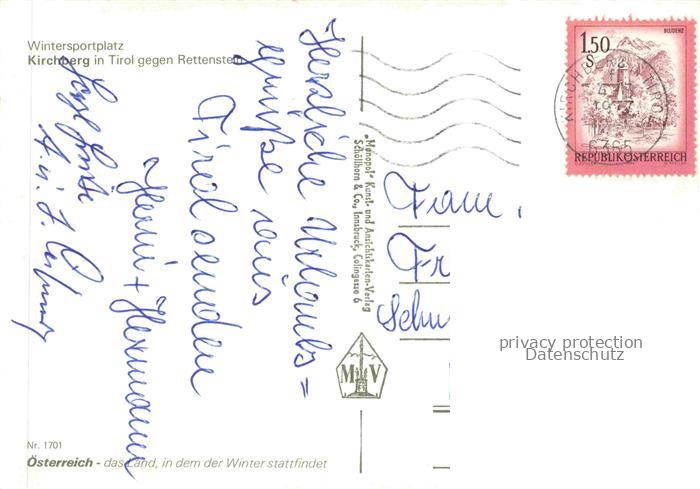 Wintersportplatz
Kirchberg in Tirol gegen Rettenstein
Herzliche Urlaubs=
grüße aus
Tirol senden
Herni + Hermann
A. u. J.
„Monopol“ Kunst- und Ansichtskarten-Verlag
Schöllhorn & Co., Innsbruck, Colingasse 6
M V
Nr. 1701
Österreich - das Land, in dem der Winter stattfindet
1.50
S
BLUDENZ
REPUBLIK ÖSTERREICH
KIRCHBERG IN TIROL
6365
Fam.
Fr
Schu
privacy protection
Datenschutz